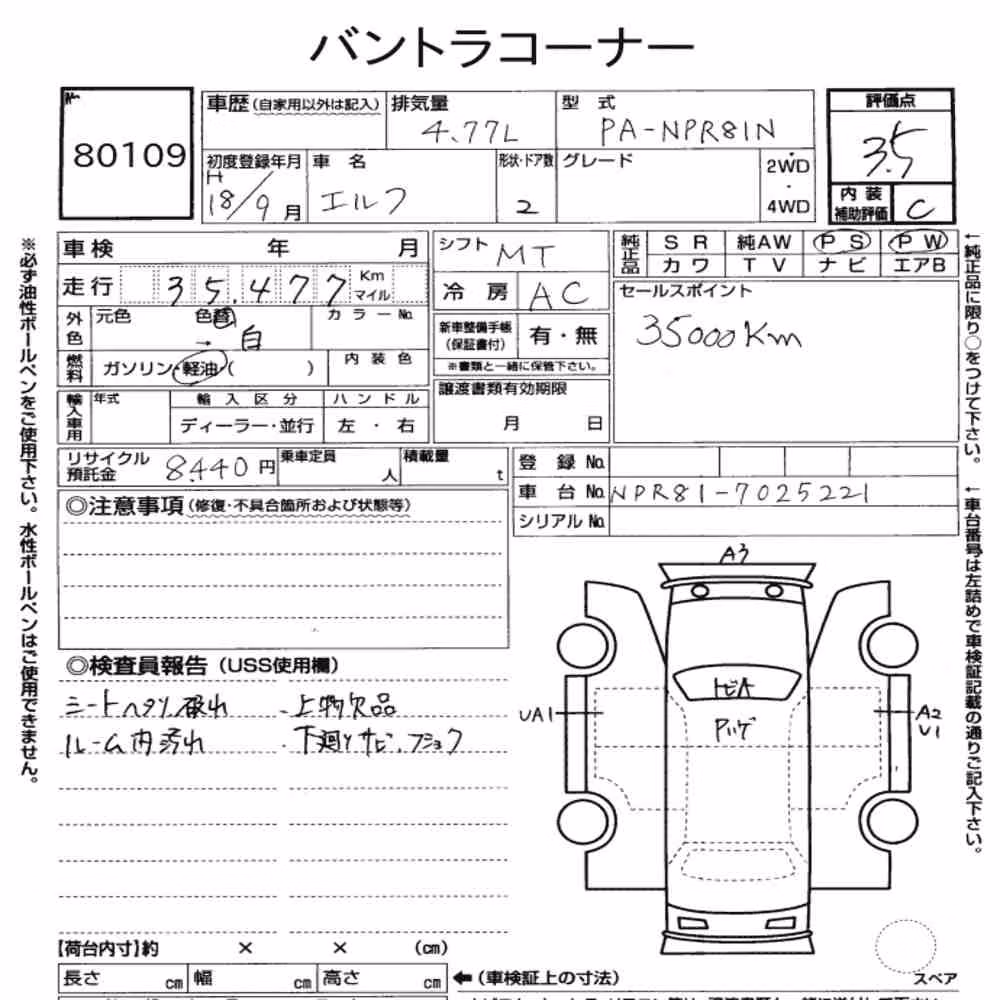 バントラコーナー
80109
車歴(自家用以外は記入) 排気量 型式 評価点
4.77L PA-NPR81N 3.5
初度登録年月 車名 形状・ドア数 グレード 2WD・4WD
H18/9月 エルフ 2
内装補助評価 C
車検 年 月
シフト MT
純正品 SR 純AW PS PW
カワ TV ナビ エアB
走行 35,477 Km マイル
冷房 AC
セールスポイント
35000Km
外色 元色 色替 カラーNo.
→ 白
新車整備手帳(保証書付) 有・無
※書類と一緒に保管下さい。
燃料 ガソリン・軽油・( ) 内装色
譲渡書類有効期限
月 日
輸入車用 年式 輸入区分 ハンドル
ディーラー・並行 左・右
リサイクル預託金 8440円 乗車定員 人 積載量 t
登録No.
車台No. NPR81-7025221
シリアルNo.
◎注意事項(修復・不具合箇所および状態等)
◎検査員報告(USS使用欄)
シートヘタリ破れ ・上物欠品
ルーム内汚れ ・下廻りサビ、フショク
A3
トビA
UA1
Pハゲ
A2
U1
【荷台内寸】約 × × (cm)
長さ cm 幅 cm 高さ cm ←(車検証上の寸法)
スペア
※必ず油性ボールペンをご使用下さい。水性ボールペンはご使用できません。
←純正品に限り○をつけて下さい。
←車台番号は左詰めで車検証記載の通りご記入下さい。